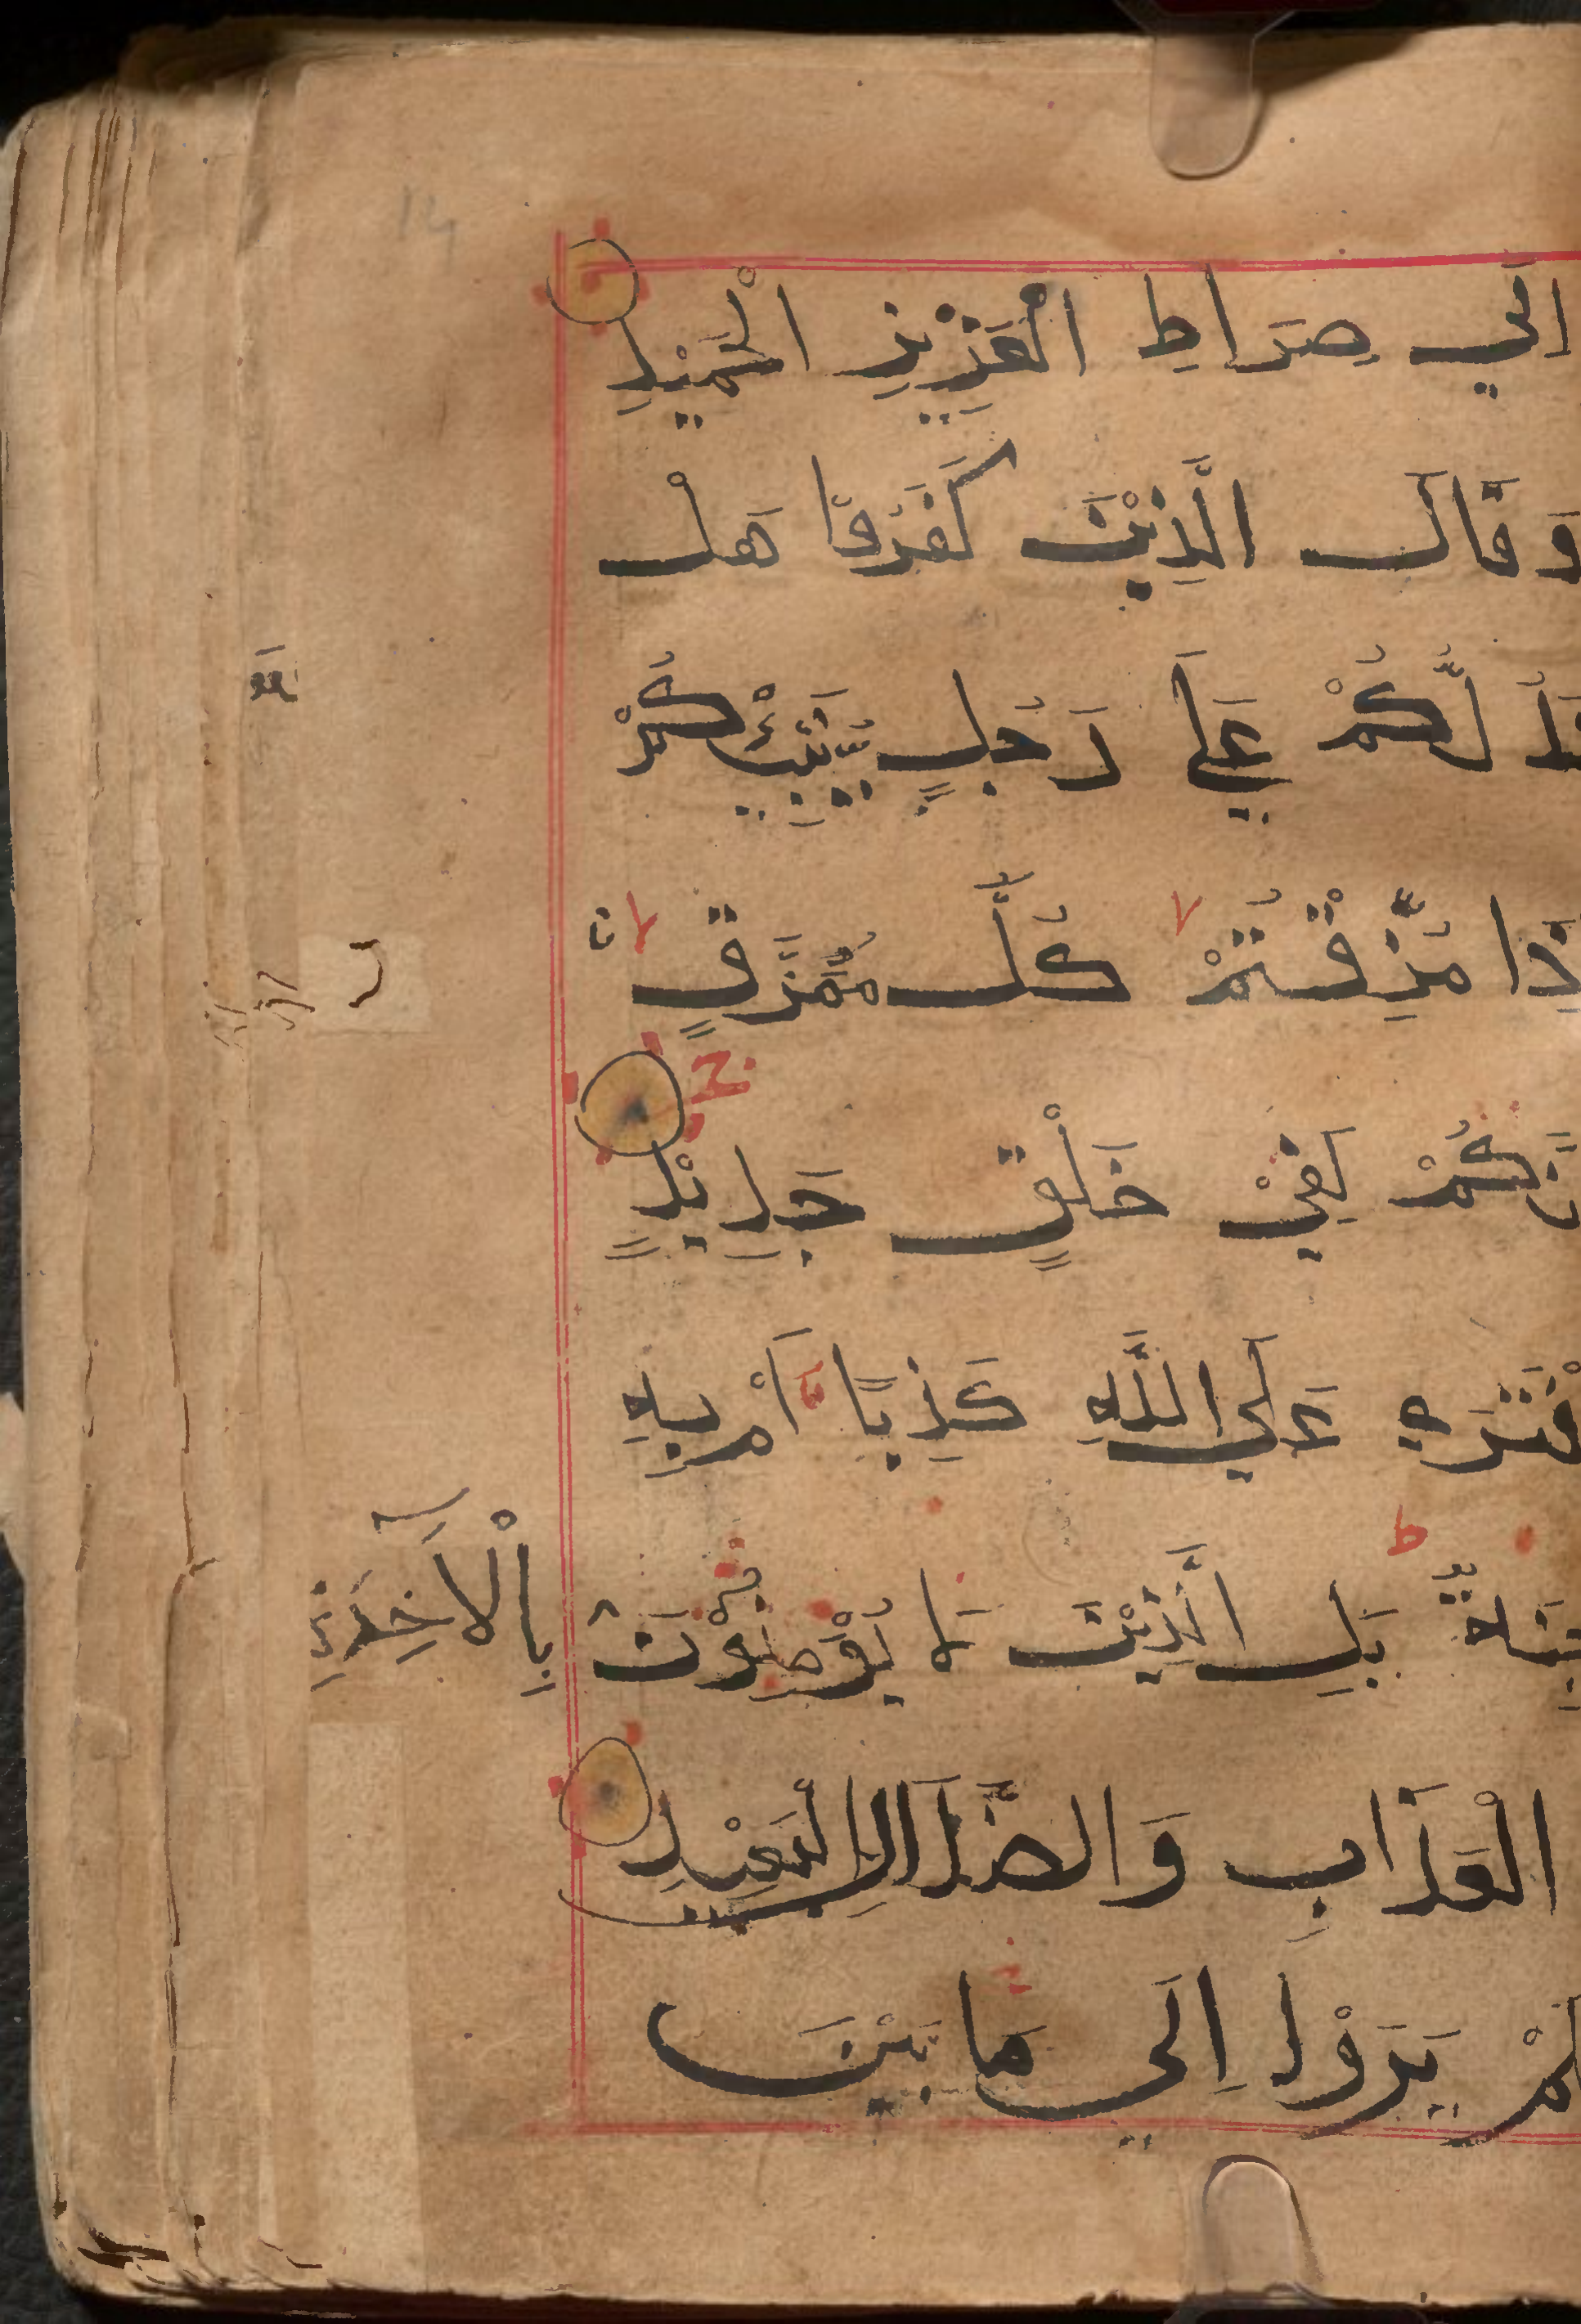 اِلَي صِرَاطِ الْعَزِيْزِ الْحَمِيْدِ
وَقَالَ الَّذِيْنَ كَفَرُوْا هَلْ
لُّكُمْ عَلَي رَجُلٍ يُّنَبِّئُكُمْ
ذَا مُزِّقْتُمْ كُلَّ مُمَزَّقٍ لا
نَّكُمْ لَفِيْ خَلْقٍ جَدِيْدٍ ج
فْتَرَي عَلَي اللّٰهِ كَذِبًا اَمْ بِهِ
جِنَّةٌ ط بَلِ الَّذِيْنَ لَا يُؤْمِنُوْنَ بِالْاٰخِرَةِ
الْعَذَابِ وَالضَّلَالِ الْبَعِيْدِ
لَمْ يَرَوْا اِلَي مَا بَيْنَ